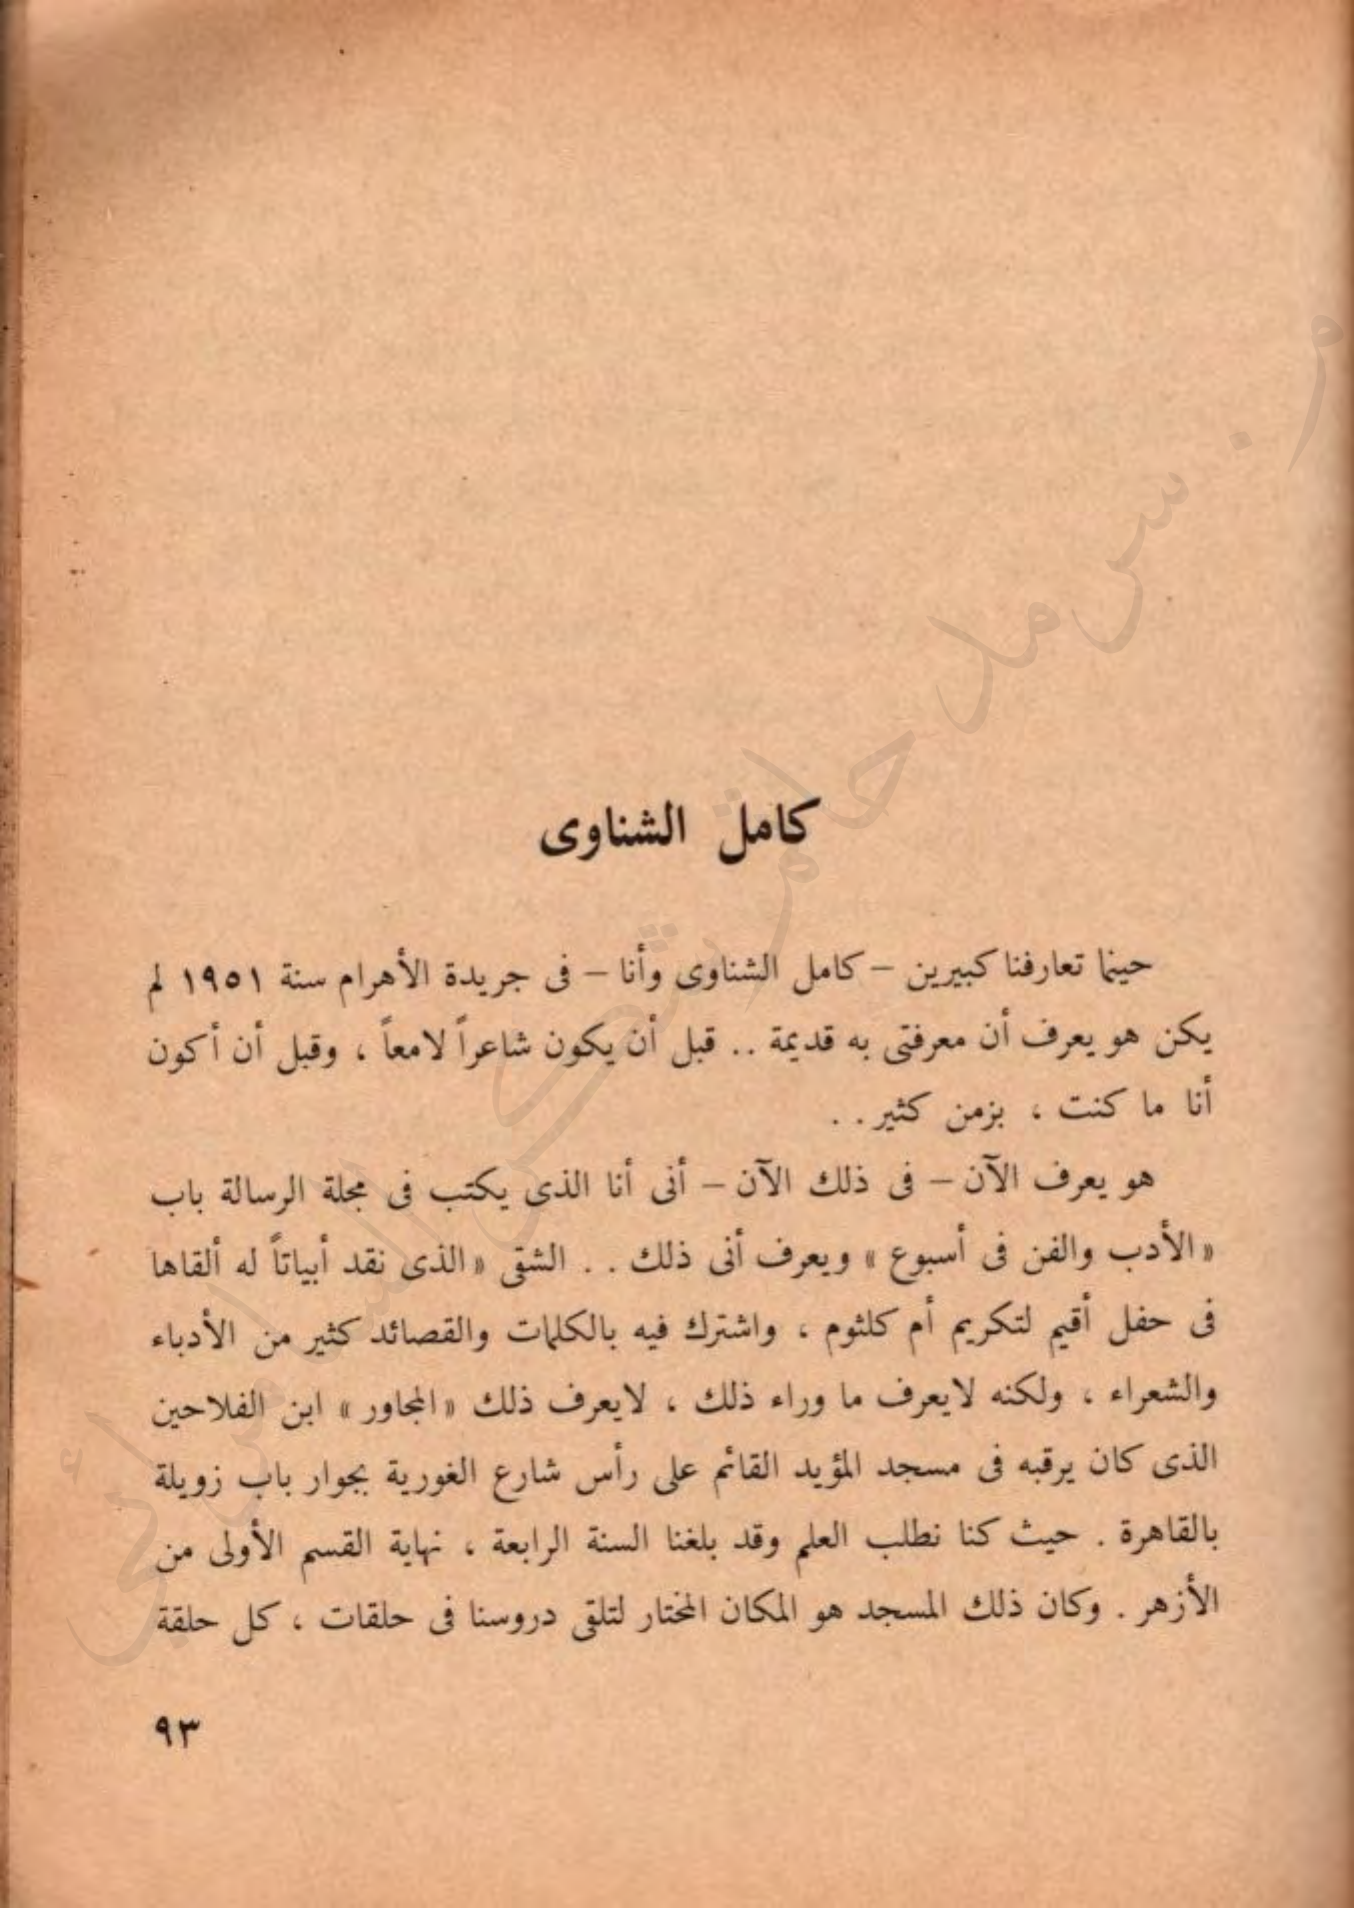 كامل الشناوى
حينما تعارفنا كبيرين – كامل الشناوى وأنا – فى جريدة الأهرام سنة ١٩٥١ لم
يكن هو يعرف أن معرفتى به قديمة .. قبل أن يكون شاعراً لامعاً ، وقبل أن أكون
أنا ما كنت ، بزمن كثير . .
هو يعرف الآن – فى ذلك الآن – أنى أنا الذى يكتب فى مجلة الرسالة باب
« الأدب والفن فى أسبوع » ويعرف أنى ذلك . . الشقى « الذى نقد أبياتاً له ألقاها
فى حفل أقيم لتكريم أم كلثوم ، واشترك فيه بالكلمات والقصائد كثير من الأدباء
والشعراء ، ولكنه لايعرف ما وراء ذلك ، لايعرف ذلك « المجاور » ابن الفلاحين
الذى كان يرقبه فى مسجد المؤيد القائم على رأس شارع الغورية بجوار باب زويلة
بالقاهرة . حيث كنا نطلب العلم وقد بلغنا السنة الرابعة ، نهاية القسم الأولى من
الأزهر . وكان ذلك المسجد هو المكان المختار لتلقى دروسنا فى حلقات ، كل حلقة
٩٣